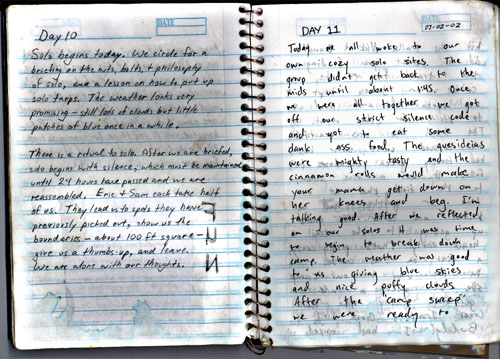 Day 10
DATE
Solo begins today. We circle for a
briefing on the nuts, bolts, + philosophy
of solo, and a lesson on how to put up
solo tarps. The weather looks very
promising - still lots of clouds but little
patches of blue once in a while.
There is a ritual to solo. After we are briefed,
solo begins with silence, which must be maintained
until 24 hours have passed and we are
reassembled. Eric + Sam each take half
of us. They lead us to spots they have
previously picked out, show us the
boundaries - about 100 ft square -
give us a thumbs-up, and leave.
We are alone with our thoughts.
DAY 11
DATE
07-02-02
Today we all woke to our
own cozy solo sites. The
group didn't get back to the
mids until about 1:45. Once
we were all together we got
off our strict silence code
and got to eat some
dank ass food. The quesideias
were mighty tasty and the
cinnamon rolls would make
your mama get down on
her knees and beg. I'm
talking good. After we reflected
on our solos it was time
to begin to break down
camp. The weather was good
to us giving blue skies
and nice puffy clouds
After the "camp sweep"
we were ready to